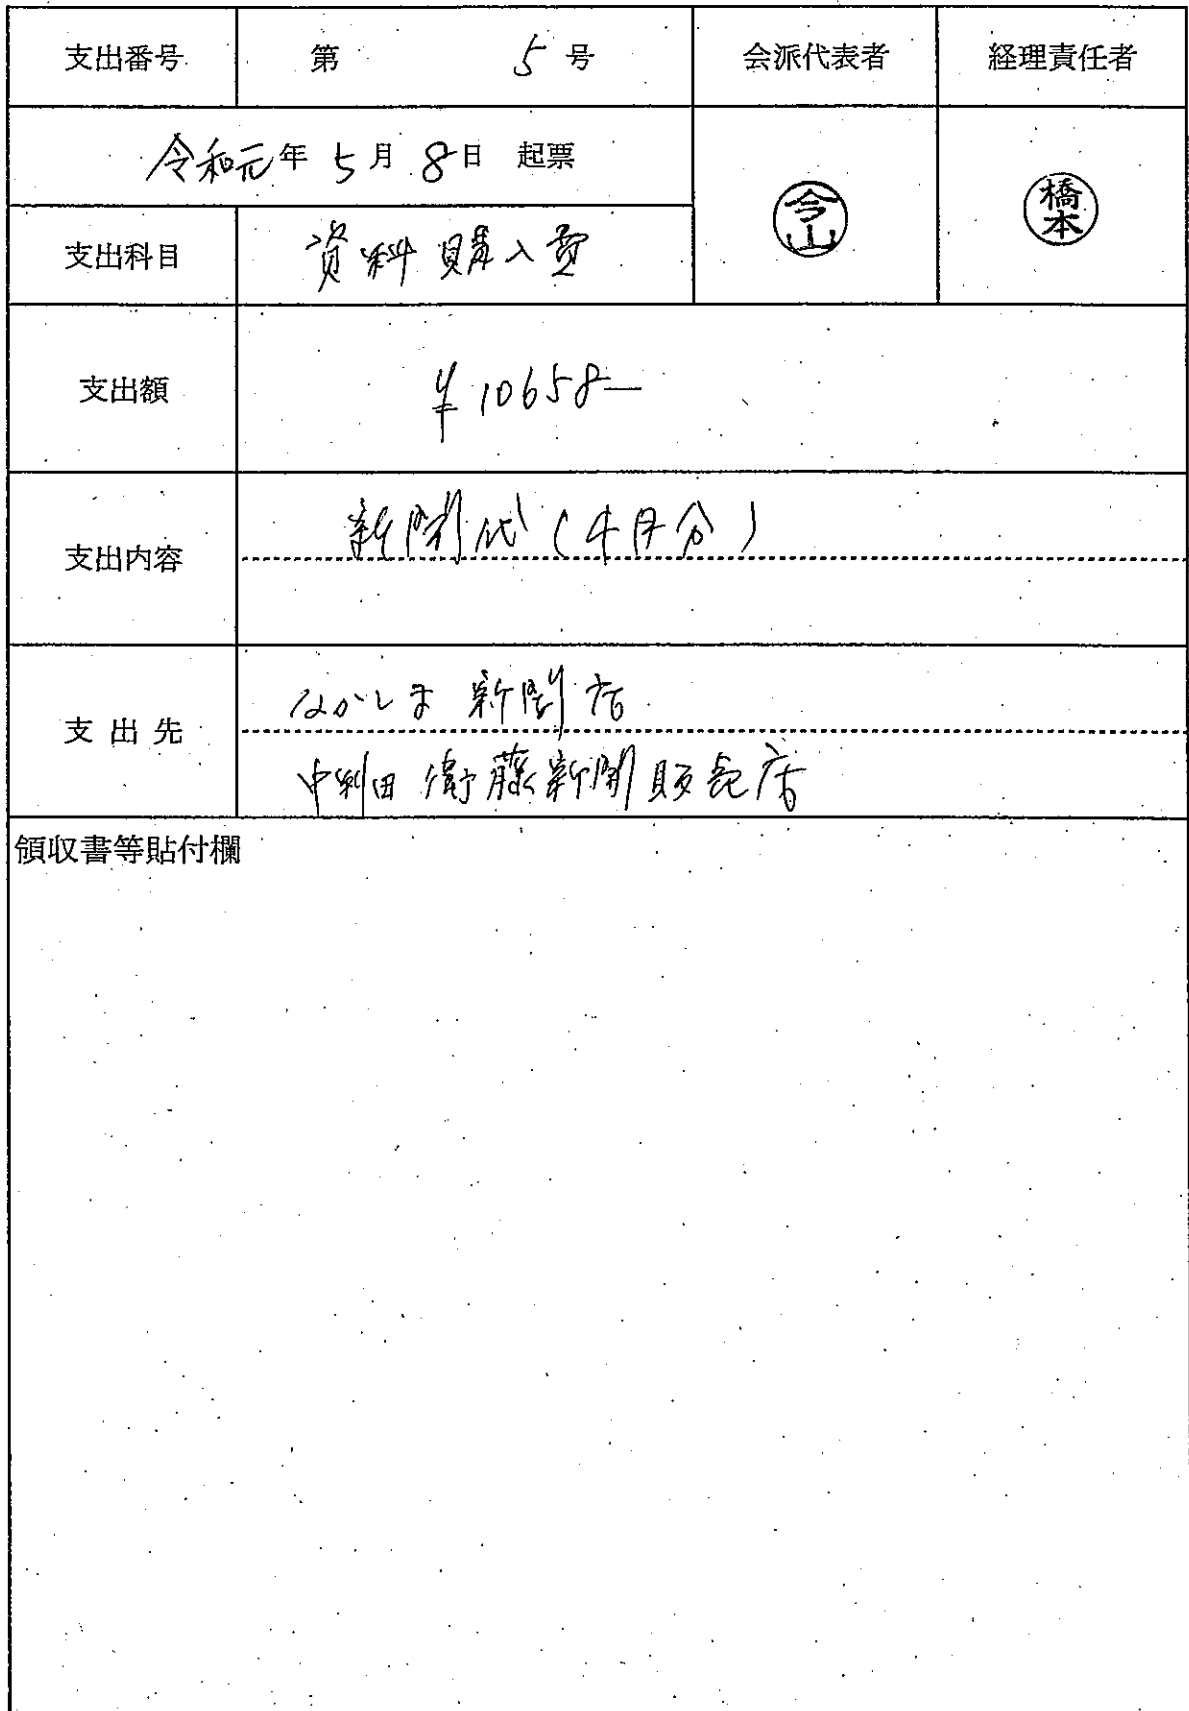 支出番号 第 5 号 会派代表者 経理責任者
令和元年 5月 8日 起票
今山 橋本
支出科目 資料購入費
支出額 ¥10658—
支出内容 新聞代(4月分)
支出先 ながしま新聞店
衛藤新聞販売店
領収書等貼付欄